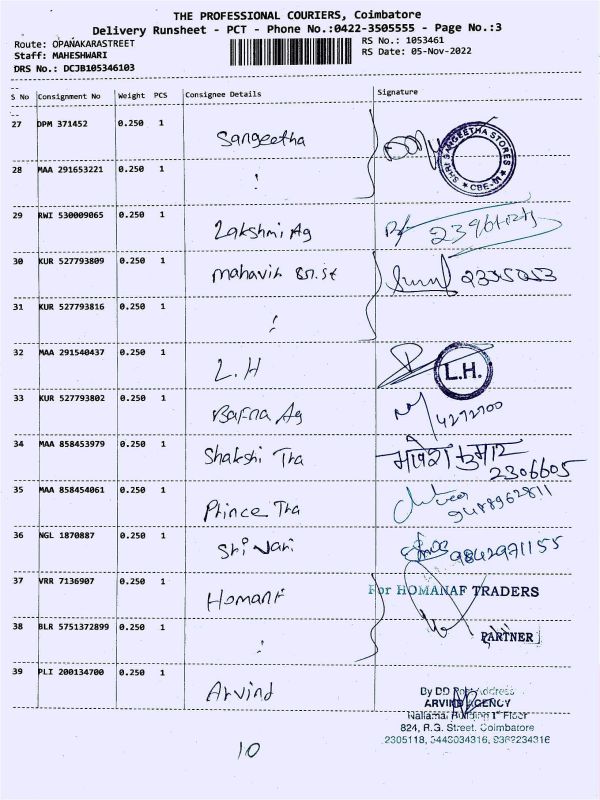 THE PROFESSIONAL COURIERS, Coimbatore
Delivery Runsheet - PCT - Phone No.:0422-3505555 - Page No.:3
Route: OPANAKARASTREET
RS No.: 1053461
Staff: MAHESHWARI
RS Date: 05-Nov-2022
DRS No.: DCJB105346103
S No Consignment No Weight PCS Consignee Details Signature
27 DPM 371452 0.250 1 Sangeetha
SHRI SANGEETHA STORES * CBE-01 *
28 MAA 291653221 0.250 1
29 RWI 530009065 0.250 1 Lakshmi Ag
30 KUR 527793809 0.250 1 mahavir
31 KUR 527793816 0.250 1
32 MAA 291540437 0.250 1 L.H
L.H.
33 KUR 527793802 0.250 1 Bafna Ag 4272700
34 MAA 858453979 0.250 1 Shakshi Tra
2306605
35 MAA 858454061 0.250 1 Prince Tra
9488962811
36 NGL 1870887 0.250 1 Sri Vari 9842971155
37 VRR 7136907 0.250 1 Homanf
For HOMANAF TRADERS
38 BLR 5751372899 0.250 1
PARTNER
39 PLI 200134700 0.250 1 Arvind
ARVIND AGENCY
824, R.G. Street. Coimbatore
10